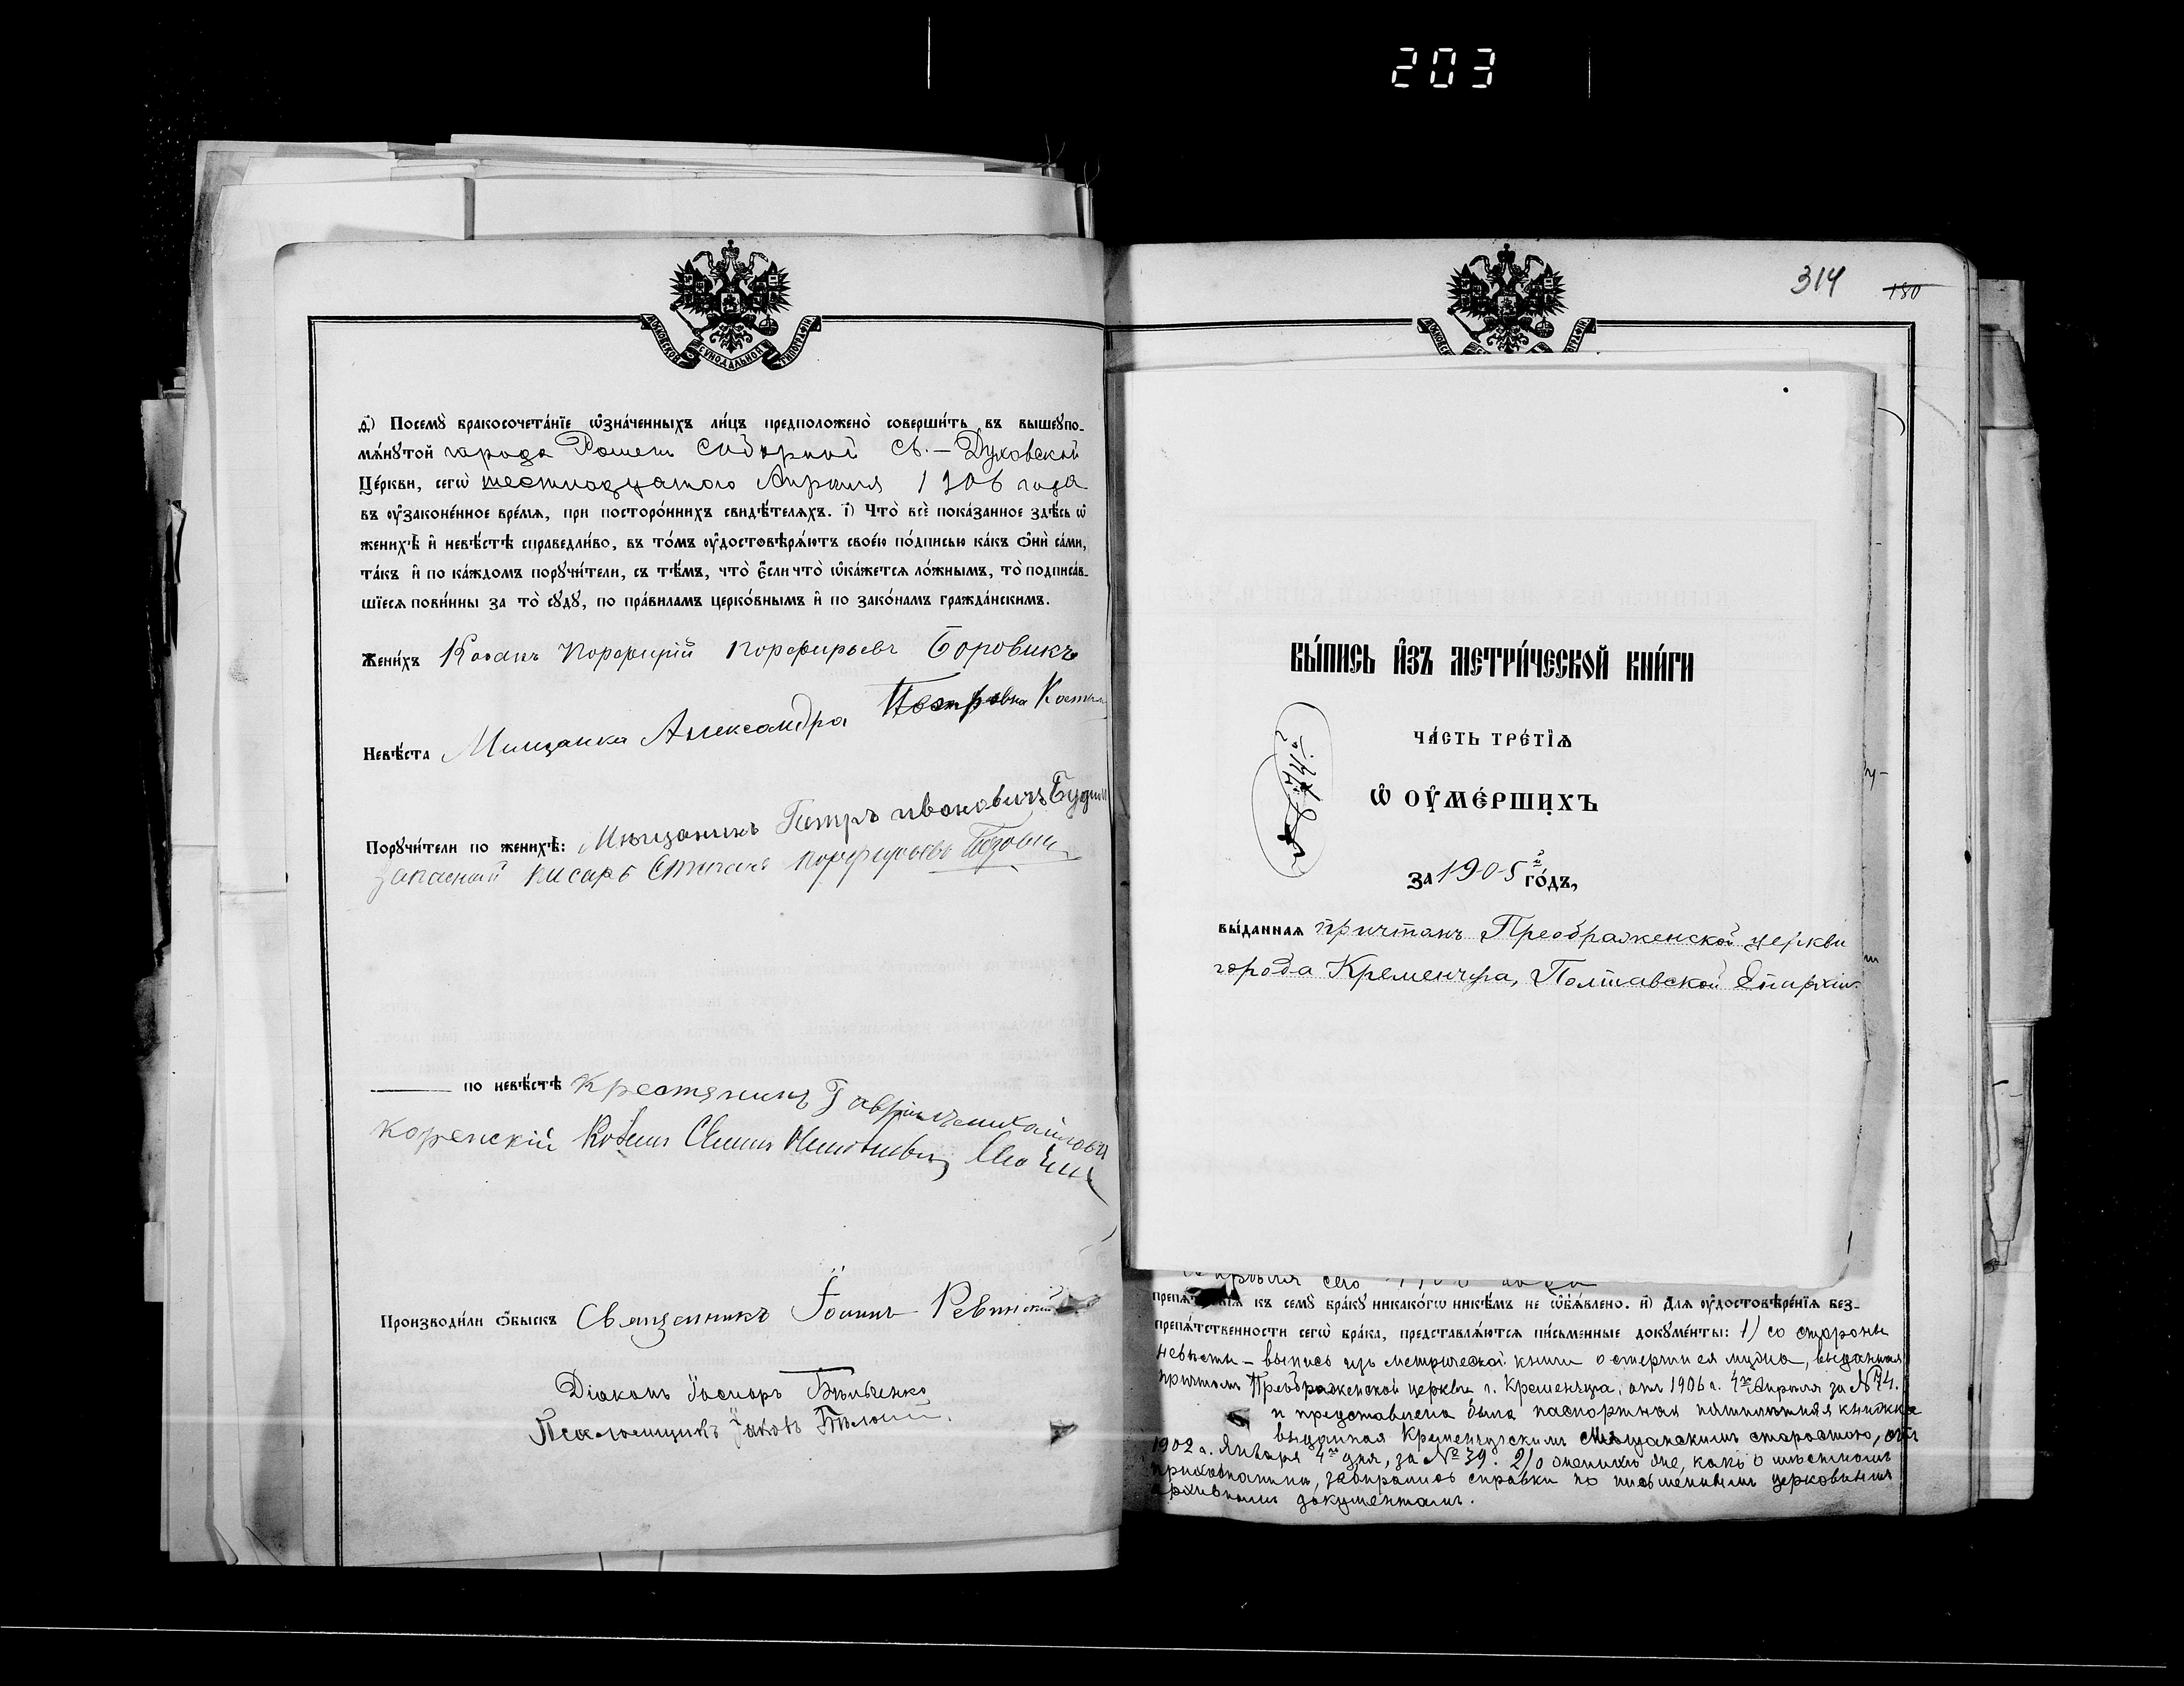 203
МОСКОВСКОЙ СѴНОДАЛЬНОЙ ТИПОГРАФІИ.
д҃) Посемꙋ̀ бракосочета́нїе ѡ҆зна́ченныхъ ли́цъ предположено̀ соверши́ть въ вышеꙋпо-
мѧ́нꙋтой города Роменъ Соборной Св.-Духовской
Це́ркви, сегѡ̀ шестнадцатаго Апрѣля 1906 года
въ ᲂу҆законе́нное вре́мѧ, при посторо́ннихъ свидѣ́телѧхъ. і҃) Что̀ всѐ пока́занное здѣ́сь ѡ҆
женихѣ̀ и҆ невѣ́стѣ справедли́во, въ то́мъ ᲂу҆достовѣрѧ́ютъ свое́ю по́дписью ка́къ ѻ҆нѝ са́ми,
та́къ и҆ по ка́ждомъ порꙋчи́тели, съ тѣ́мъ, что̀ є҆́сли что̀ ѡ҆ка́жетсѧ ло́жнымъ, то̀ подписа́в-
шїесѧ пови́нны за то̀ сꙋдꙋ̀, по пра́виламъ церко́внымъ и҆ по зако́намъ гражда́нскимъ.
Жени́хъ Козакъ Порфирій Порфирьевъ Боровикъ
Невѣ́ста Мищанка Александра Петровна
Порꙋчи́тели по женихѣ̀: Мѣщанинъ Петръ ивановичъ
запасный писарь Степанъ порфирьевъ
по невѣ́стѣ Крестянинъ Гавріилъ михайловъ
коренскій
Производи́ли ѻ҆́быскъ Священникъ Іоаннъ
Діаконъ Іоасафъ Бѣльченко
Псаломщикъ Іаковъ
314 180
ВЫ́ПИСЬ И҆ЗЪ МЕТРИ́ЧЕСКОЙ КНИ́ГИ
ЧА́СТЬ ТРЕ́ТЇѦ
Ѡ҆ ОУ҆МЕ́РШИХЪ
№ 74.
ЗА 1905й ГО́ДЪ,
вы́даннаѧ причтомъ Преображенской церкви
города Кременчуга, Полтавской Епархіи.
препѧ́тствїѧ къ семꙋ̀ бра́кꙋ никако́гѡ никѣ́мъ не ѡ҆б̾ѧ́влено. и҃) Длѧ ᲂу҆достовѣре́нїѧ без-
препѧ́тственности сегѡ̀ бра́ка, представлѧ́ютсѧ пи́сьменные докꙋме́нты: 1) со стороны
невѣсты – выпись изъ метрической книги о смерти ея мужа, выданная
причтомъ Преображенской церкви г. Кременчуга, отъ 1906 г. 4го Апрѣля за № 74.
и представлена была паспортная пятилѣтняя книжка
выданная Кременчугскимъ Мѣщанскимъ старостою, отъ
1902 г. Января 4го дня, за № 39. 2) о женихѣ же, какъ о мѣстномъ
прихожанинѣ, забирались справки по письменнымъ церковнымъ
архивнымъ документамъ.